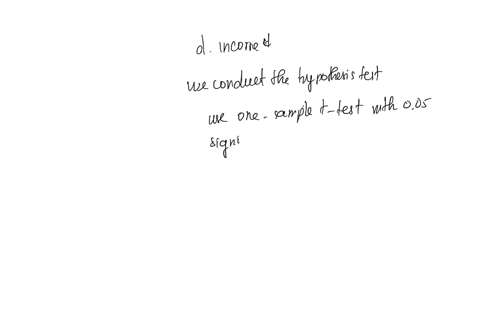 d. incorrect
we conduct the hypothesis test
use one-sample t-test with 0.05
signi